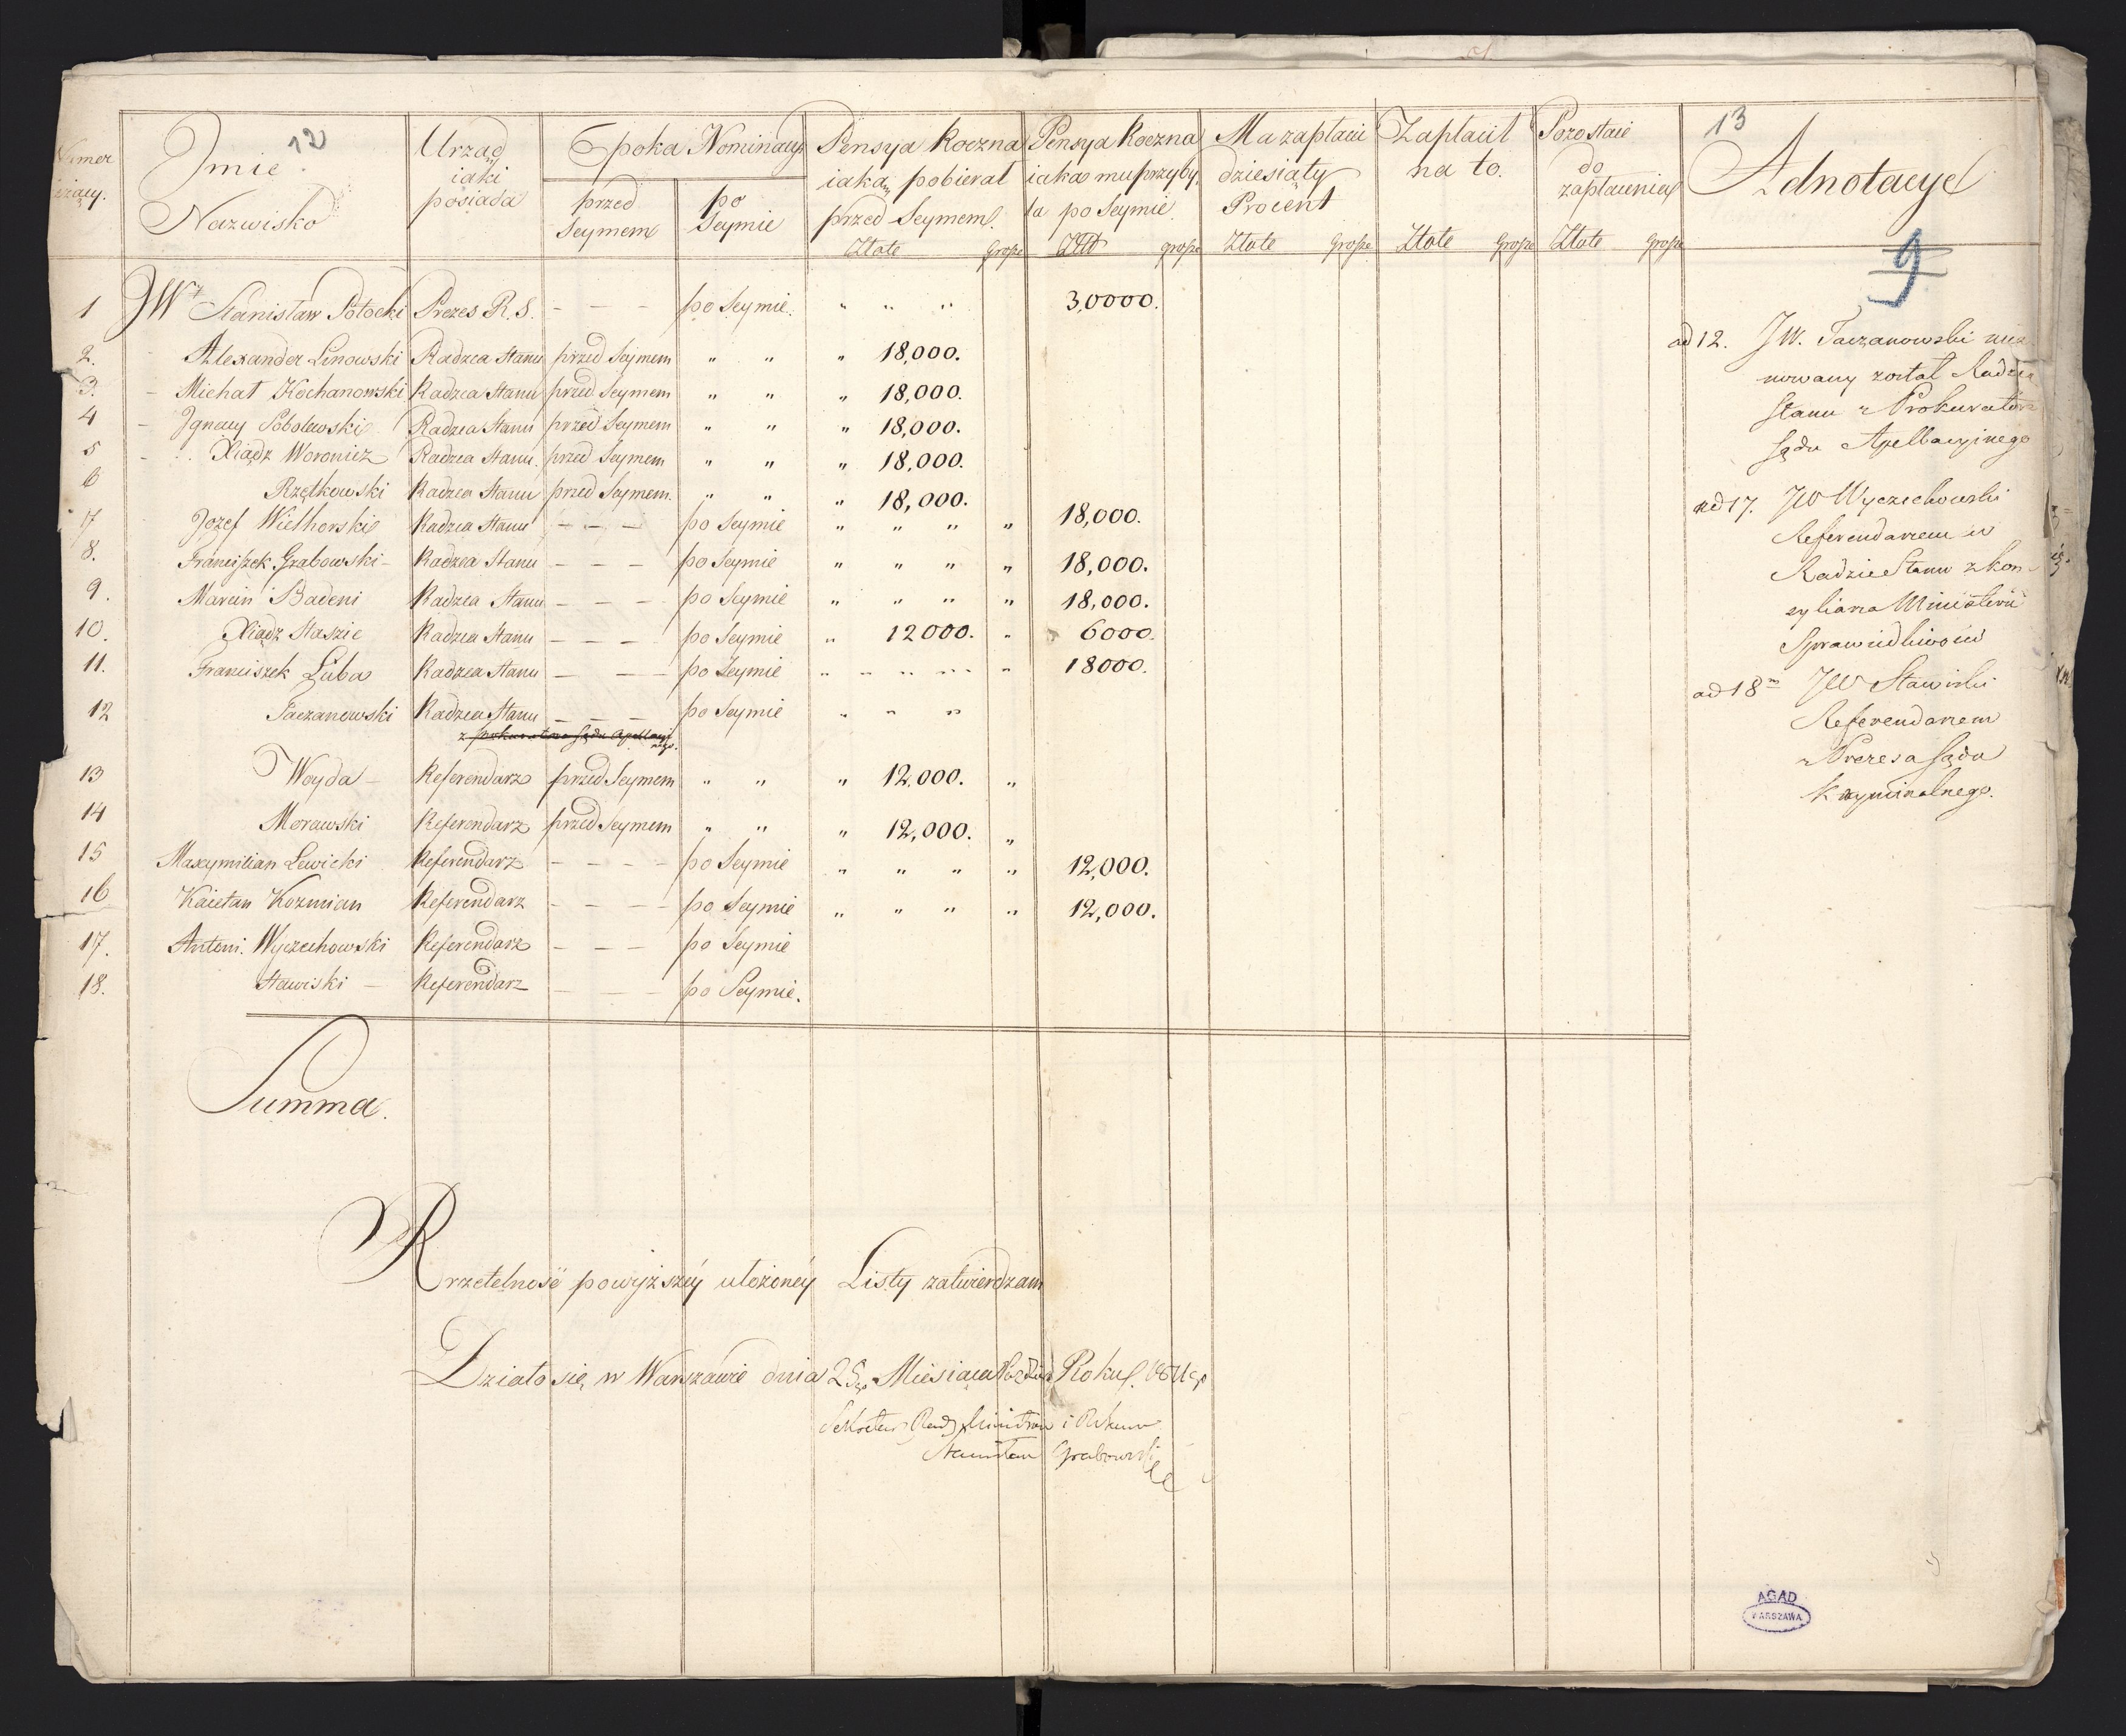 12
13
Numer bieżący.
Imie Nazwisko
Urząd iaki posiada
Epoka Nominacyi
przed Seymem
po Seymie
Pensya Roczna iaką pobierał przed Seymem.
Złote grosze
Pensya Roczna iaka mu przyby, ła po Seymie
Złote grosze
Ma zapłacić dziesiąty Procent
Złote grosze
Zapłacił na to.
Złote grosze
Pozostaie do zapłacenia
Złote grosze
Adnotacye
9
1 JW Stanisław Potocki Prezes R. S. — — — po Seymie. " " " 3,0000.
2. Alexander Linowski Radzca Stanu przed Sejmem " " " 18,000.
3. – Michał Kochanowski Radzca Stanu przed Seymem " " " 18,000.
4 – Ignacy Sobolewski Radzca Stanu przed Seymem " " " 18,000.
5 – Xiądz Woronicz Radzca Stanu. przed Seymem " " " 18,000.
6 Rzętkowski Radzca Stanu przed Seymem. " " " 18,000.
7 Jozef Wielhorski Radzca Stanu — — — po Seymie " " " " 18,000.
8. Franciszek Grabowski – Radzca Stanu — — — po Seymie " " " " 18,000.
9. Marcin Badeni Radzca Stanu — — — po Seymie " " " " 18,000.
10. Xiądz Staszic Radzca Stanu — — — po Seymie " 12000. " 6000.
11. Franciszek Łuba Radzca Stanu — — — po Seymie " " " " " 18000.
12 Taczanowski Radzca Stanu — — — po Seymie " " "
z prokuratora Sądu Apellacyi nego.
13 Woyda – Referendarz przed Seymem " " " 12,000. "
14 Morawski Referendarz przed Seymem " " " 12,000. "
15 Maxymilian Lewicki Referendarz — — — — po Seymie " " " " 12,000.
16 Kaietan Kozmian Referendarz — — — — po Seymie " " " " 12,000.
17. Antoni. Wyczechowski Referendarz — — — po Seymie
18. Stawiski – Referendarz — — — po Seymie.
Summa.
ad 12. JW. Taczanowski mia
nowany został Radzca
Stanu z Prokuratora
Sądu Apellacyinego
ad 17. JW Wyczechowski
Referendarzem w
Radzie Stanu z kon
syliarza Ministerii
Sprawiedliwości
ad 18m JW Stawiski
Referendarzem
z Prezesa Sądu
Kryminalnego.
Rzetelność powyższéy ułożonéy Listy zatwierdzam
Działo się w Warszawie dnia 25go Miesiąca Paźdźi Roku. 1811go
Sekretarz Rady Ministrow i
Stanisław Grabowski
AGAD
WARSZAWA